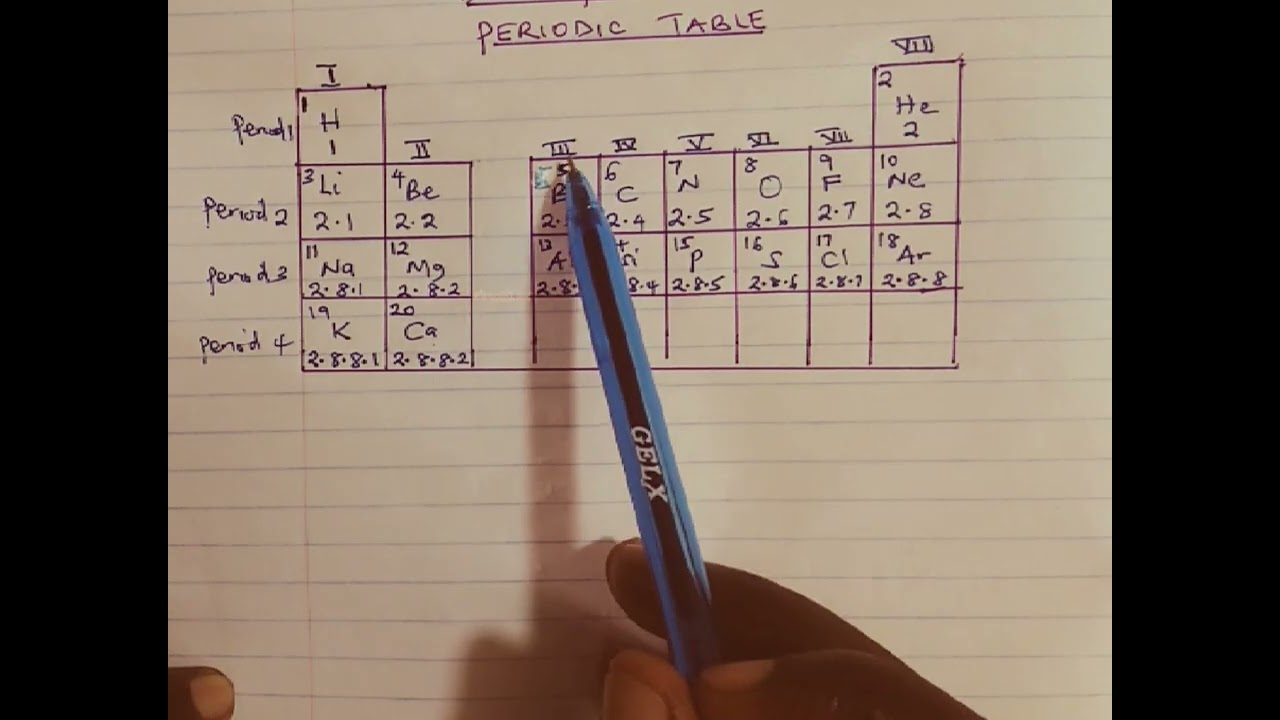 PERIODIC TABLE
VIII
I
2
1
He
Period 1
H
2
1
II
III
IV
V
VI
VII
3
4
5
6
7
8
9
10
Li
Be
B
C
N
O
F
Ne
Period 2
2.1
2.2
2.4
2.5
2.6
2.7
2.8
11
12
13
15
16
17
18
Na
Mg
P
S
Cl
Ar
Period 3
2.8.1
2.8.2
2.8.5
2.8.6
2.8.7
2.8.8
19
20
K
Ca
Period 4
2.8.8.1
2.8.8.2
GELX